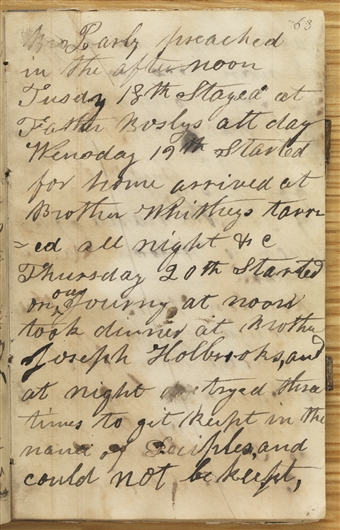 63
Bro Parly preached
in the after noon
Tusdy 18th Stayed at
Father Boslys all day
Wensday 19th Started
for home arrived at
Brother Whitneys tarri
=ed all night &c
Thursday 20th Started
on our Journy at noon
took dinner at Brother
Joseph Holbrooks, and
at night we tryed three
times to git keept in the
name of Deciples, and
could not be keept,